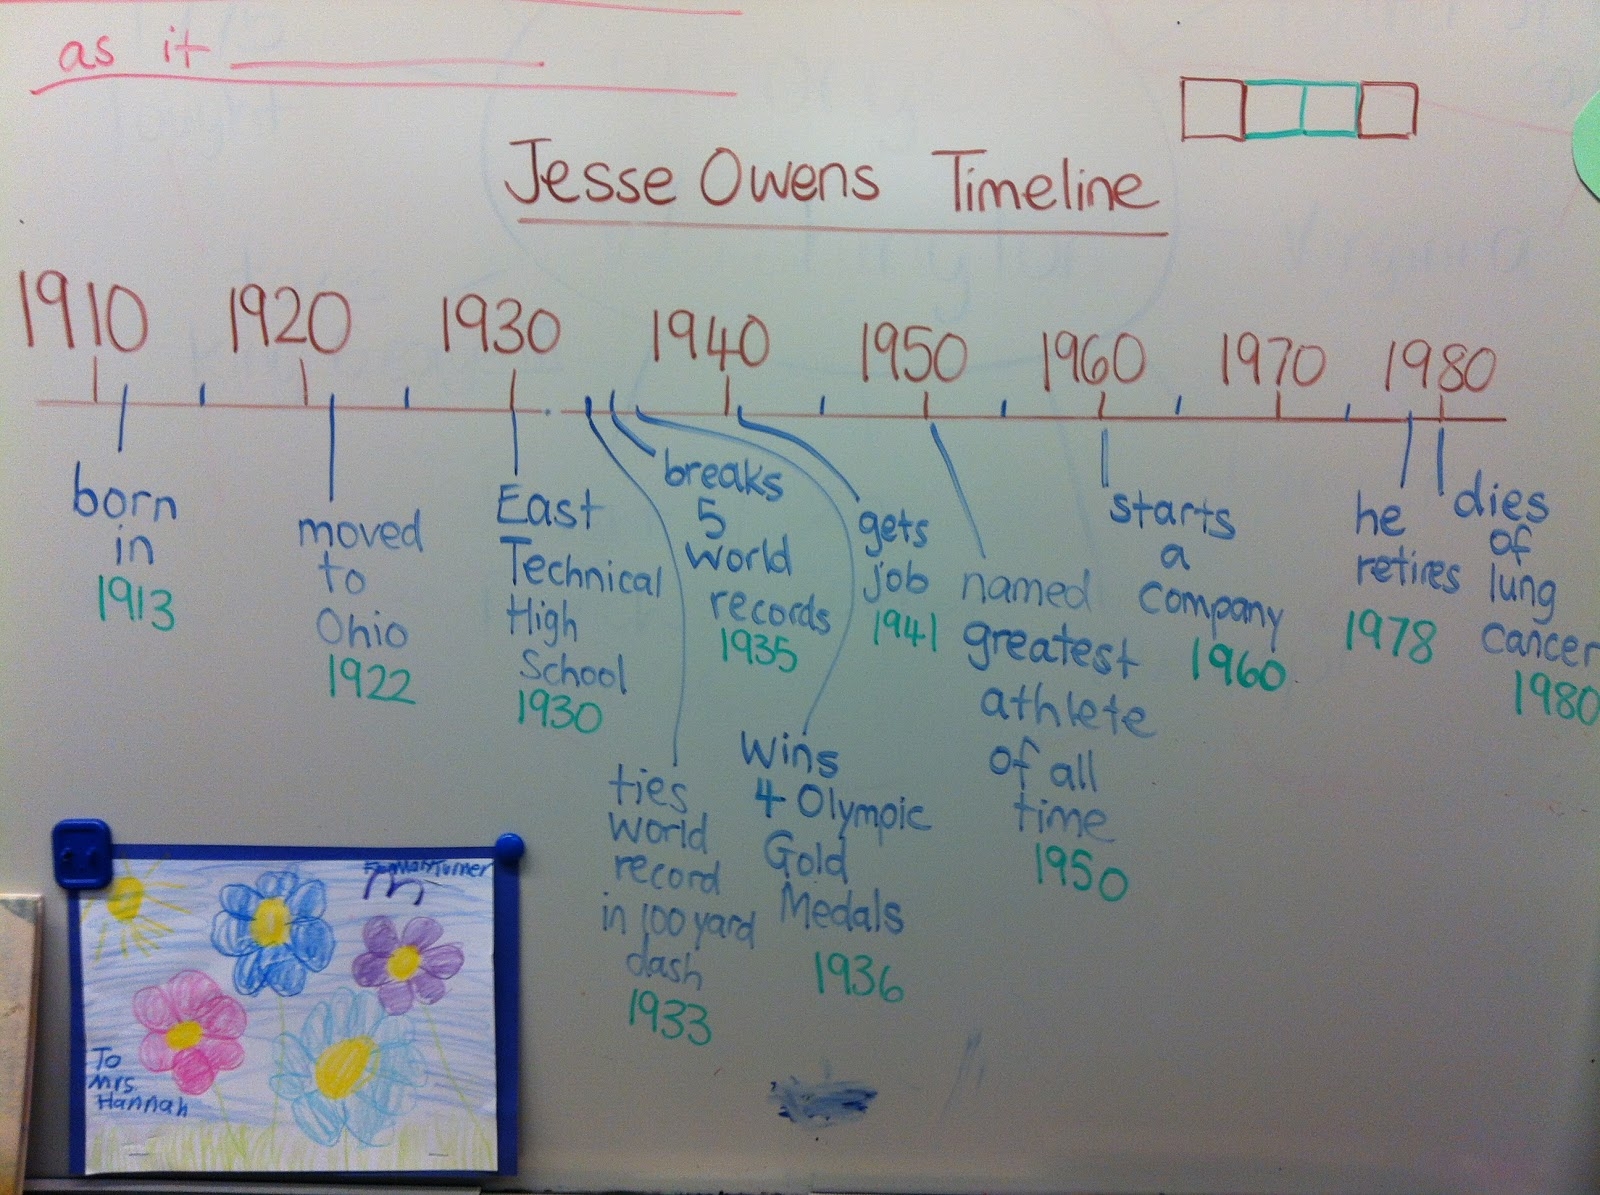 as it
Jesse Owens Timeline
1910 1920 1930 1940 1950 1960 1970 1980
born
in
1913
moved
to
Ohio
1922
East
Technical
High
School
1930
ties
world
record
in 100 yard
dash
1933
breaks
5
world
records
1935
Wins
4 Olympic
Gold
Medals
1936
gets
job
1941
named
greatest
athlete
of all
time
1950
starts
a
company
1960
he
retires
1978
dies
of
lung
cancer
1980
To
Mrs.
Hannah